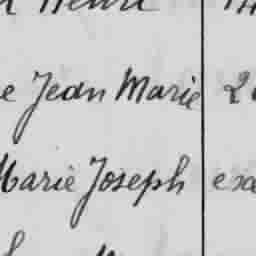 Henri
e Jean Marie 2
Marie Joseph exa